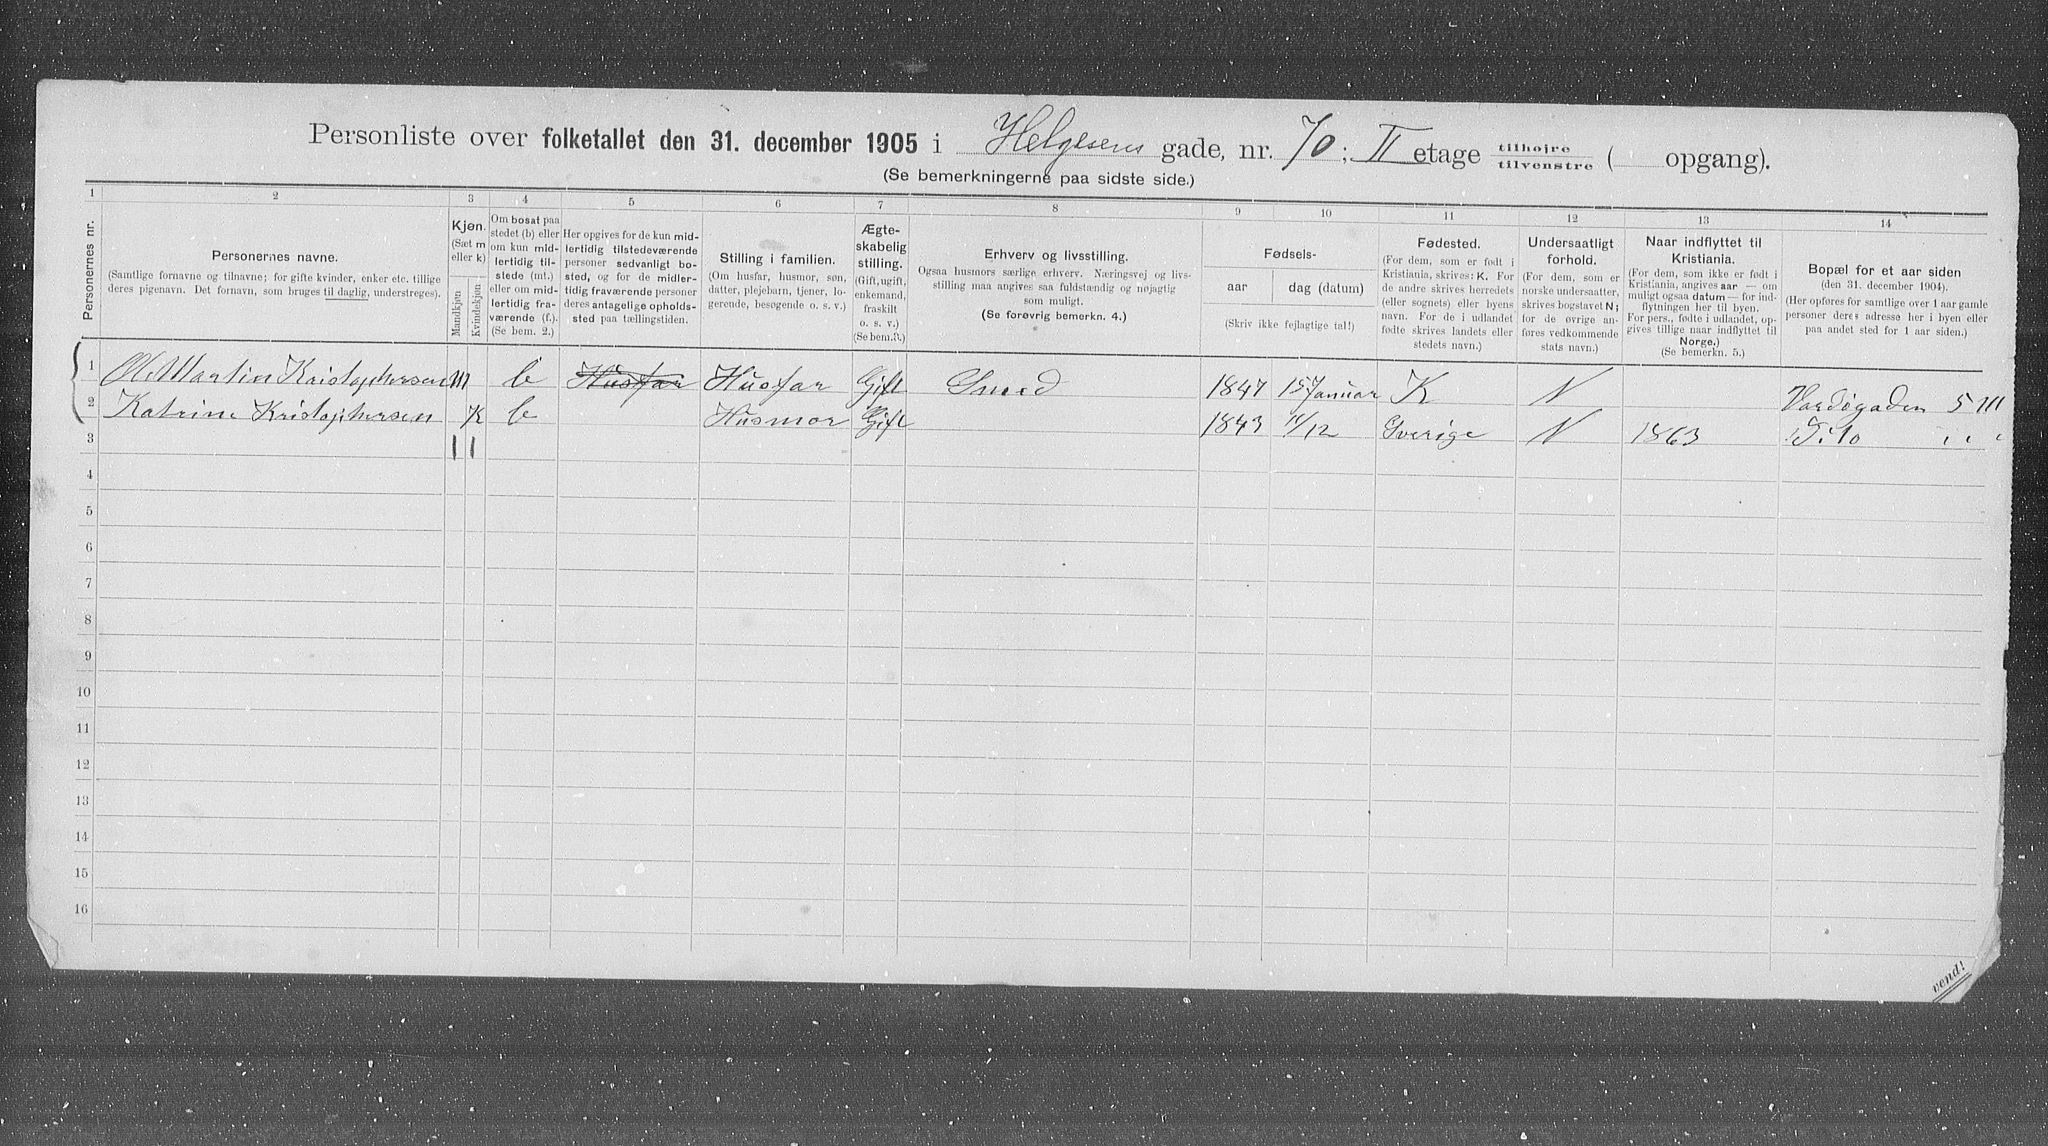 Personliste over folketallet den 31. december 1905 i Helgesens gade, nr. 70; II etage tilhøjre tilvenstre ( opgang).
(Se bemerkningerne paa sidste side.)
1 2 3 4 5 6 7 8 9 10 11 12 13 14
Personernes nr.
Personernes navne.
(Samtlige fornavne og tilnavne; for gifte kvinder, enker etc. tillige
deres pigenavn. Det fornavn, som bruges til daglig, understreges).
Kjøn.
(Sæt m
eller k)
Mandkjøn
Kvindekjøn
Om bosat paa
stedet (b) eller
om kun mid-
lertidig til-
stede (mt.)
eller om mid-
lertidig fra-
værende (f.).
(Se bem. 2.)
Her opgives for de kun mid-
lertidig tilstedeværende
personer sedvanligt bo-
sted, og for de midler-
tidig fraværende personer
deres antagelige opholds-
sted paa tællingstiden.
Stilling i familien.
(Om husfar, husmor, søn,
datter, plejebarn, tjener, lo-
gerende, besøgende o. s. v.)
Ægte-
skabelig
stilling.
(Gift, ugift,
enkemand,
fraskilt
o. s. v.)
(Se bem. 3.)
Erhverv og livsstilling.
Ogsaa husmors særlige erhverv. Næringsvej og livs-
stilling maa angives saa fuldstændig og nøjagtig
som muligt.
(Se forøvrig bemerkn. 4.)
Fødsels-
aar
dag (datum)
(Skriv ikke fejlagtige tal!)
Fødested.
(For dem, som er født i
Kristiania, skrives: K. For
de andre skrives herredets
(eller sognets) eller byens
navn. For de i udlandet
fødte skrives landets eller
stedets navn.)
Undersaatligt
forhold.
(For dem, som er
norske undersaatter,
skrives bogstavet N;
for de øvrige an-
føres vedkommende
stats navn.)
Naar indflyttet til
Kristiania.
(For dem, som ikke er født i
Kristiania, angives aar — om
muligt ogsaa datum — for ind-
flytningen her til byen.
For pers., fødte i udlandet, op-
gives tillige naar indflyttet til
Norge.)
(Se bemerkn. 5.)
Bopæl for et aar siden
(den 31. december 1904).
(Her opføres for samtlige over 1 aar gamle
personer deres adresse her i byen eller
paa andet sted for 1 aar siden.)
1 Ole Martin Kristophersen m b Husfar Husfar Gift Smed 1847 15 Januar K N Vardøgaden 5 III
2 Katrine Kristophersen K b Husmor Gift 1843 11/12 Sverige N 1863 Dito
3
4
5
6
7
8
9
10
11
12
13
14
15
16
vend!